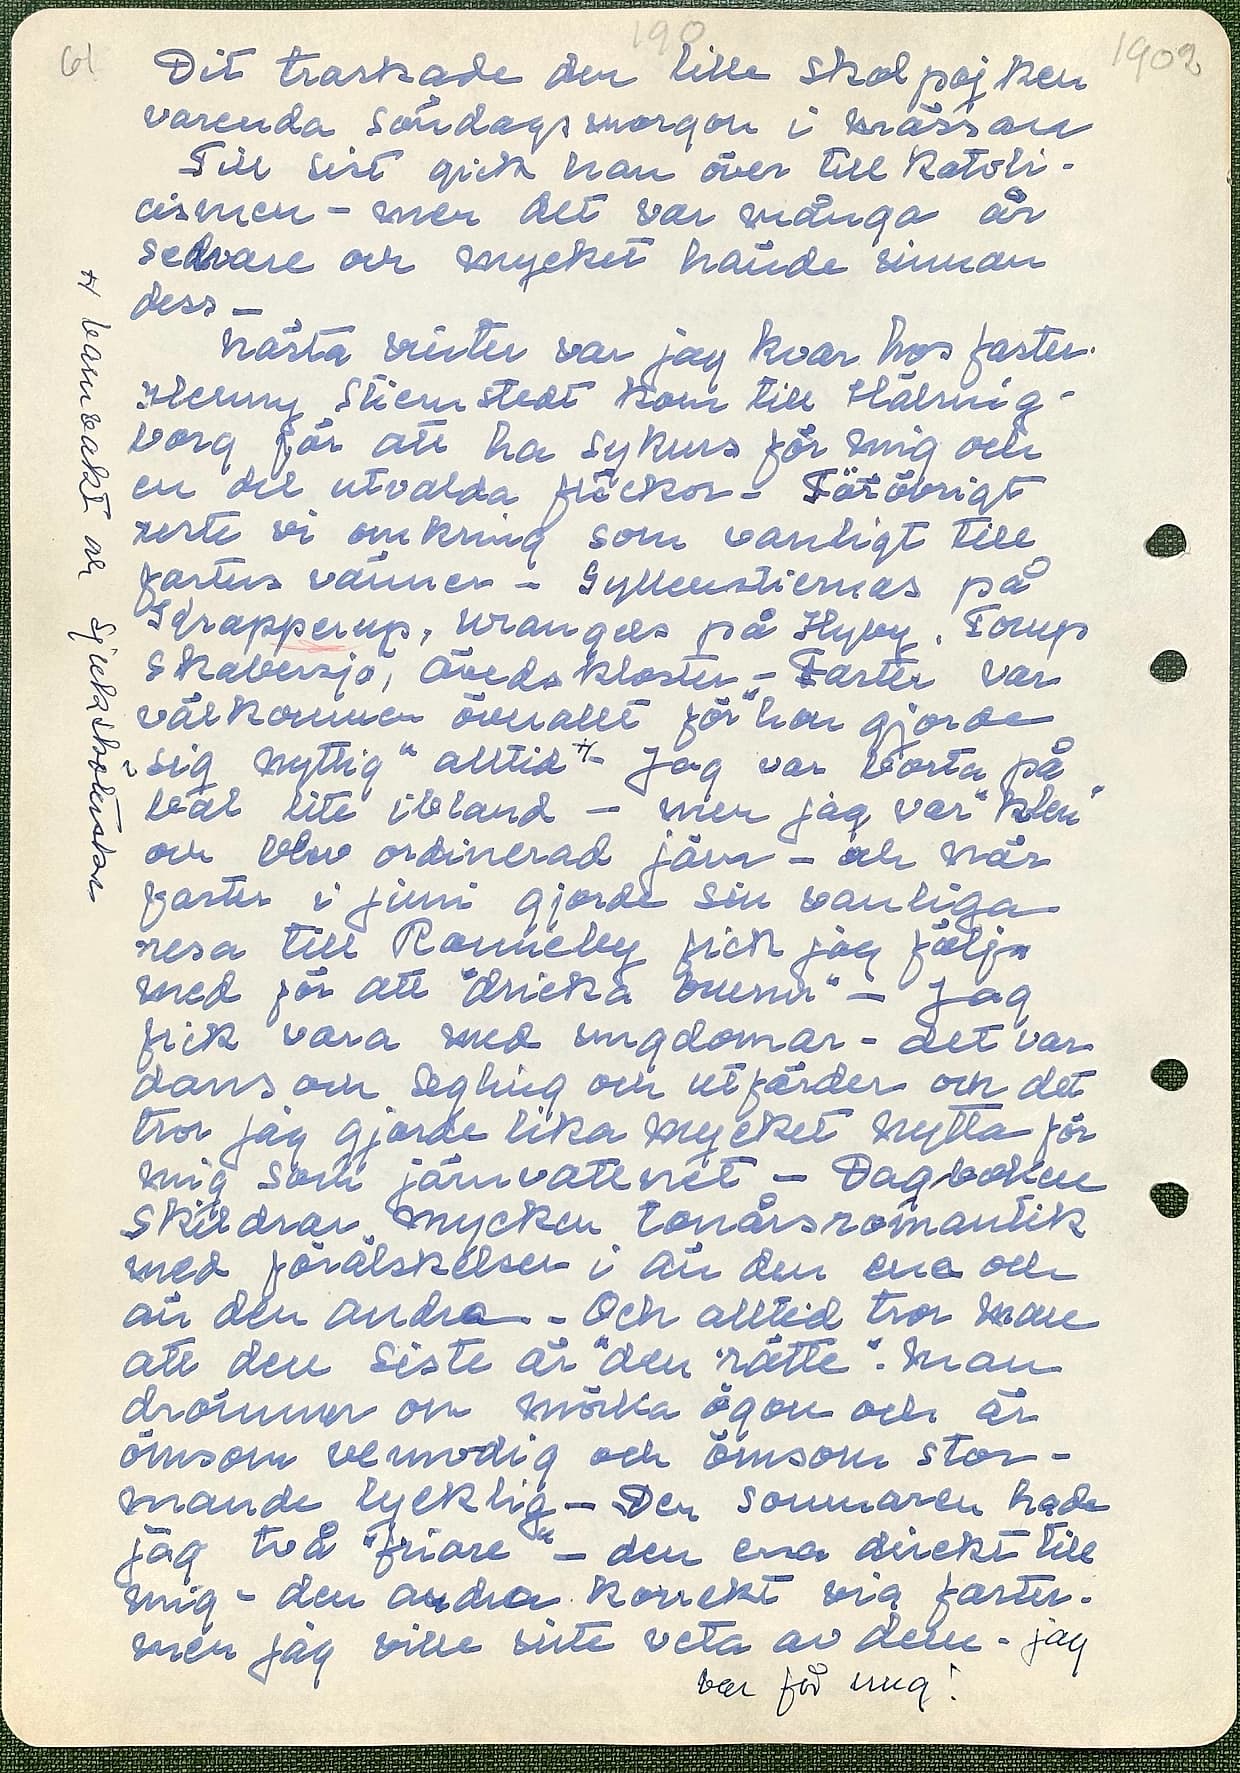 61
190
1902
Dit traskade den lille skolpojken
varenda söndagsmorgon i mässan
Till sist gick han över till katoli-
cismen – men det var många år
sednare och mycket hände innan
dess –
Nästa vinter var jag kvar hos faster.
Henny Stiernstedt kom till Hälsing-
borg för att ha sykurs för mig och
en del utvalda flickor – För övrigt
reste vi omkring som vanligt till
fasters vänner – Gyllenstiernas på
Krapperup, Wrangels på Hyby, Torup
Skabersjö, Övedskloster – Faster var
välkommen överallt för "hon gjorde
sig nyttig" alltid +/– Jag var borta på
bal lite ibland – men jag var "klen"
och blev ordinerad järn – och när
faster i juni gjorde sin vanliga
resa till Ronneby fick jag följa
med för att "dricka brunn" – Jag
fick vara med ungdomar – det var
dans och segling och utfärder och det
tror jag gjorde lika mycket nytta för
mig som järnvattnet – Dagboken
skildrar mycken tonårsromantik
med förälskelser i än den ena och
än den andra. – Och alltid tror man
att den siste är "den rätte". Man
drömmer om mörka ögon och är
ömsom vemodig och ömsom stor-
mande lycklig – Den sommaren hade
jag två "friare" – den ena direkt till
mig – den andra korrekt via faster.
men jag ville inte veta av dem – jag
var för ung!
+/ barnvakt och sjuksköterska